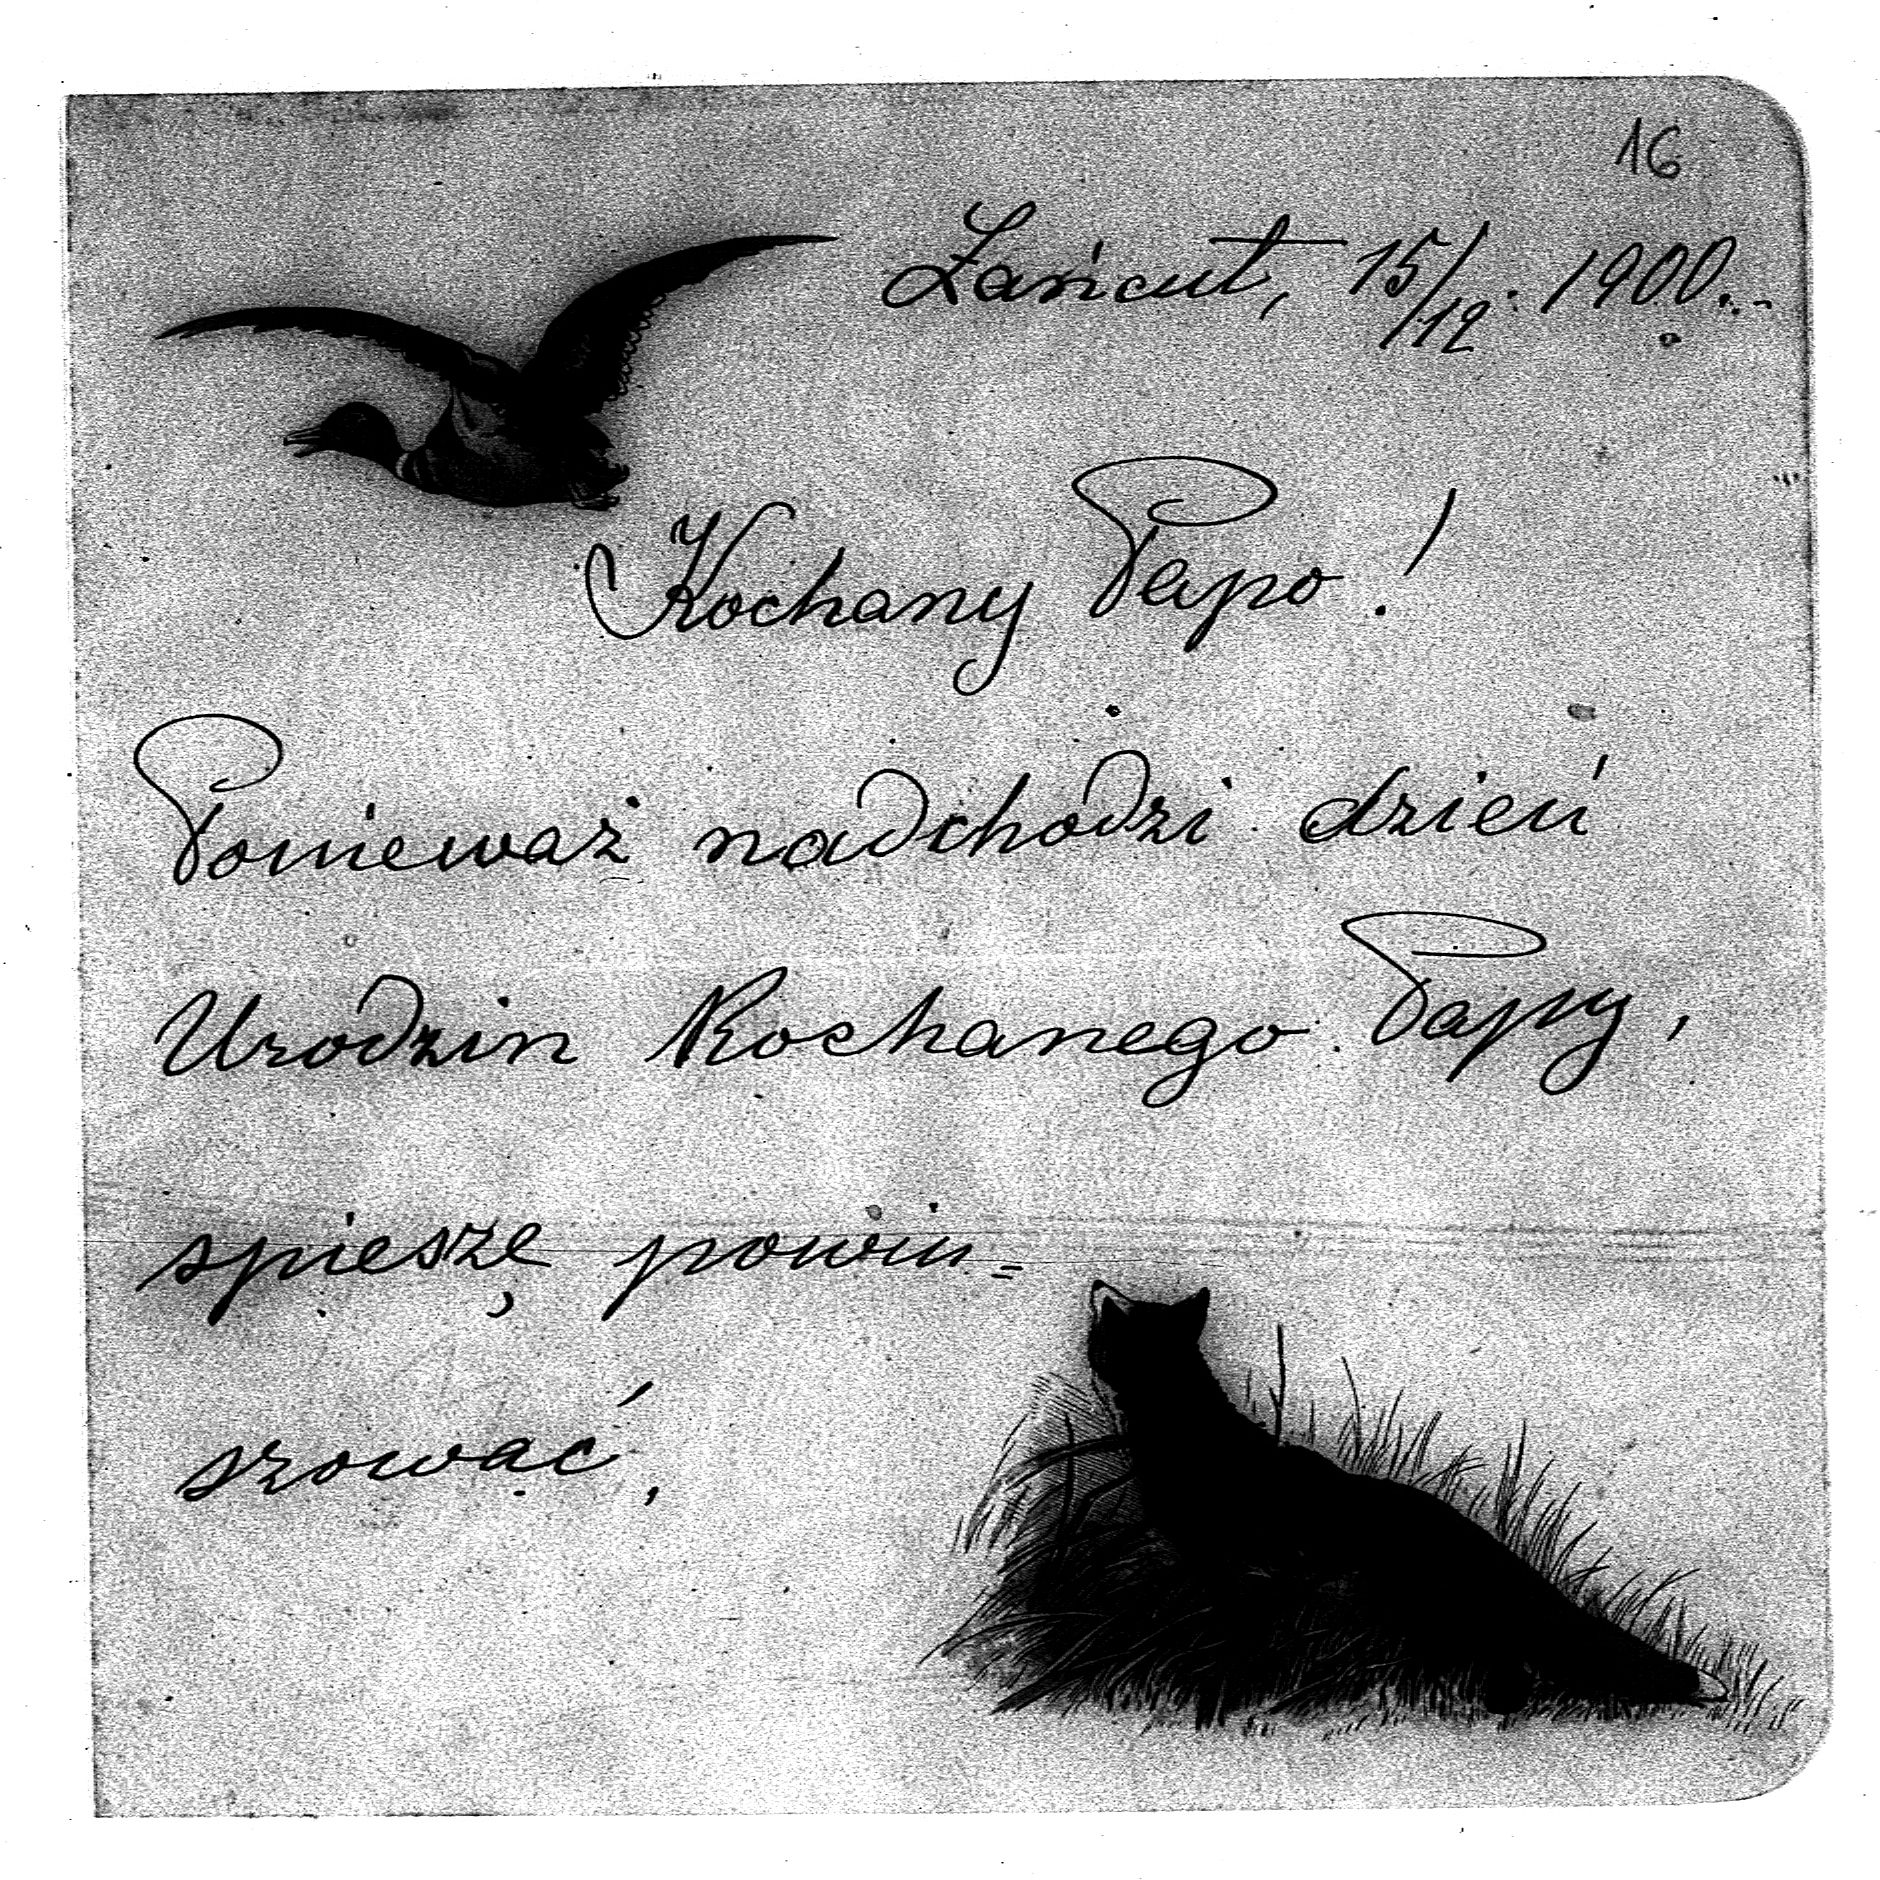 16
Łańcut, 15/12. 1900.
Kochany Papo!
Ponieważ nadchodzi dzień
Urodzin Kochanego Papy,
spieszę powin=
szować,